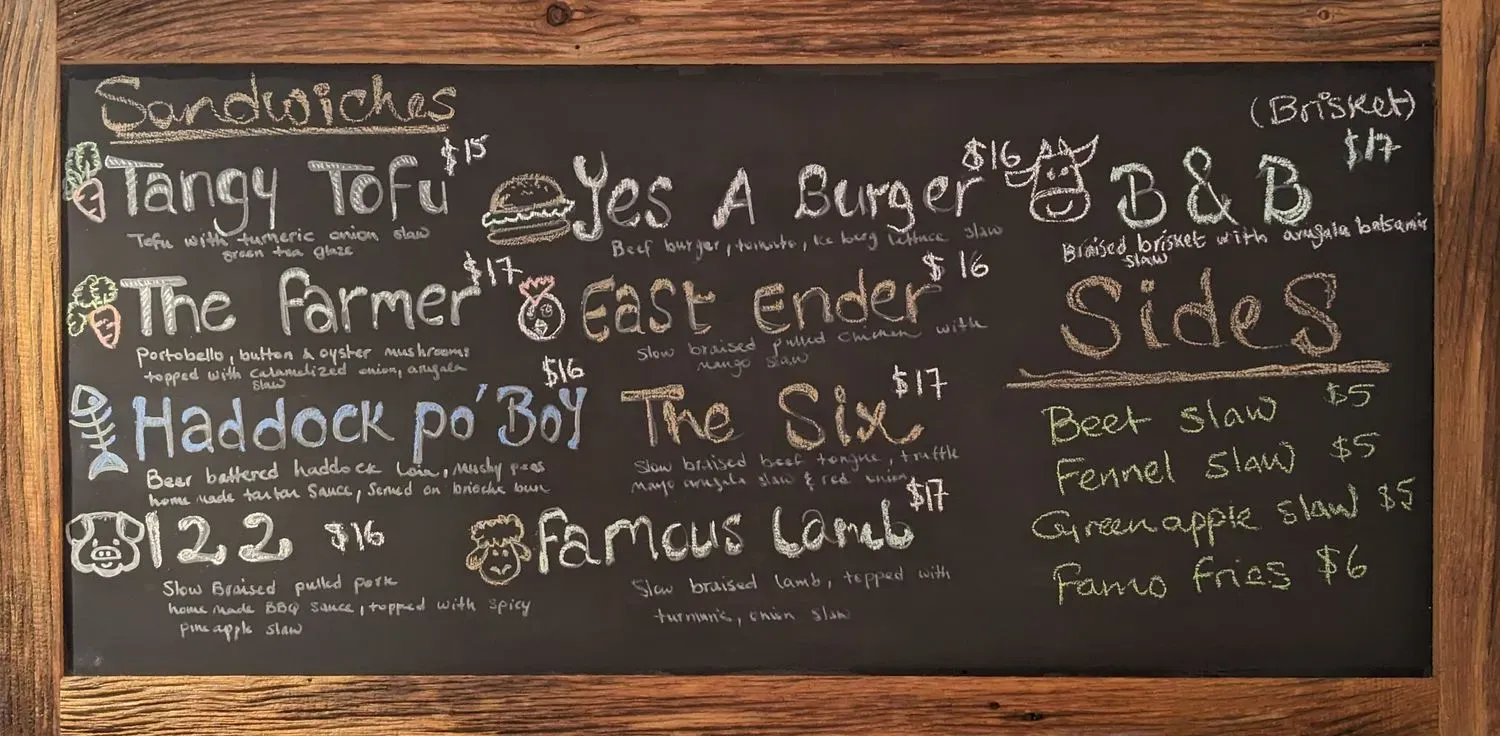 Sandwiches
Tangy Tofu $15
Tofu with turmeric onion slaw
green tea glaze
The Farmer $17
Portobello, button & oyster mushrooms
topped with caramelized onion, arugala
slaw
Haddock po' Boy $16
Beer battered haddock loin, mushy peas
home made tartar sauce, served on brioche bun
122 $16
Slow Braised pulled pork
home made BBQ sauce, topped with spicy
pineapple slaw
Yes A Burger $16
Beef burger, tomato, Ice burg lettuce slaw
East Ender $16
Slow braised pulled chicken with
mango slaw
The Six $17
Slow braised beef tongue, truffle
mayo arugala slaw & red onion
Famous Lamb $17
Slow braised lamb, topped with
turmuric, onion slaw
(Brisket)
B & B $17
Braised brisket with arugala balsamic
slaw
Sides
Beet slaw $5
Fennel slaw $5
Green apple slaw $5
Famo fries $6